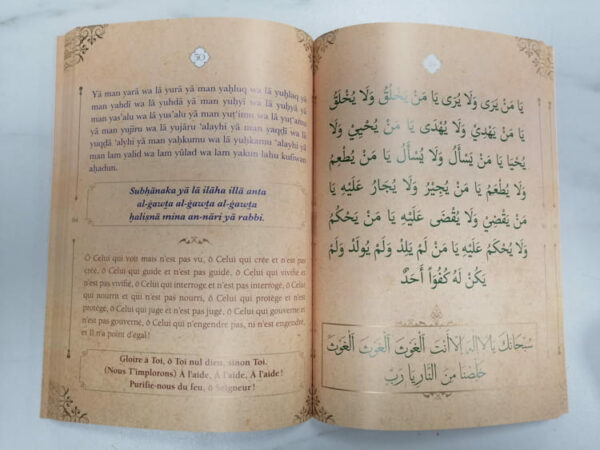 50
Yā man yarā wa lā yurā yā man yaḥluq wa lā yuḥlaq yā
man yahdī wa lā yuhdā yā man yuḥyī wa lā yuḥyā yā
man yas'alu wa lā yus'alu yā man yuṭ'imu wa lā yuṭ'amu
yā man yujīru wa lā yujāru 'alayhi yā man yaqḍī wa lā
yuqḍā 'alyhi yā man yaḥkumu wa lā yuḥkamu 'alayhi yā
man lam yalid wa lam yūlad wa lam yakun lahu kufūwan
aḥadun.
Subḥānaka yā lā ilāha illā anta
al-ġawṯa al-ġawṯa al-ġawṯa
ḥaliṣnā mina an-nāri yā rabbi.
84
Ô Celui qui voit mais n'est pas vu, ô Celui qui crée et n'est pas
crée, ô Celui qui guide et n'est pas guidé, ô Celui qui vivifie et
n'est pas vivifié, ô Celui qui interroge et n'est pas interrogé, ô Celui
qui nourri et qui n'est pas nourri, ô Celui qui protège et n'est pas
protégé, ô Celui qui juge et n'est pas jugé, ô Celui qui gouverne et
n'est pas gouverné, ô Celui qui n'engendre pas, ni n'est engendré,
et Il n'a point d'égal !
Gloire à Toi, ô Toi nul dieu, sinon Toi.
(Nous T'implorons) À l'aide, À l'aide, À l'aide !
Purifie-nous du feu, ô Seigneur !
يَا مَنْ يَرَى وَلَا يُرَى يَا مَنْ يَخْلُقُ وَلَا يُخْلَقُ
يَا مَنْ يَهْدِيْ وَلَا يُهْدَى يَا مَنْ يُحْيِيْ وَلَا
يُحْيَا يَا مَنْ يَسْأَلُ وَلَا يُسْأَلُ يَا مَنْ يُطْعِمُ
وَلَا يُطْعَمُ يَا مَنْ يُجِيْرُ وَلَا يُجَارُ عَلَيْهِ يَا
مَنْ يَقْضِيْ وَلَا يُقْضَى عَلَيْهِ يَا مَنْ يَحْكُمُ
وَلَا يُحْكَمُ عَلَيْهِ يَا مَنْ لَمْ يَلِدْ وَلَمْ يُولَدْ وَلَمْ
يَكُنْ لَهُ كُفُوًا أَحَدٌ
سُبْحَانَكَ يَا لَا اِلٰهَ اِلَّا اَنْتَ اَلْغَوْثَ اَلْغَوْثَ اَلْغَوْثَ
خَلِّصْنَا مِنَ النَّارِ يَا رَبِّ